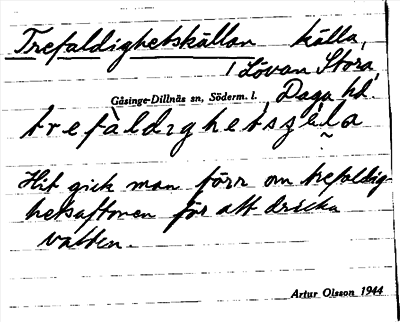 Trefaldighetskällan källa,
i Lövan Stora,
Gåsinge-Dillnäs sn, Söderm. l. Daga hd.
trefàldıghetsçɛla
Hit gick man förr om trefaldig-
hetsaftonen för att dricka
vatten.
Artur Olsson 1944